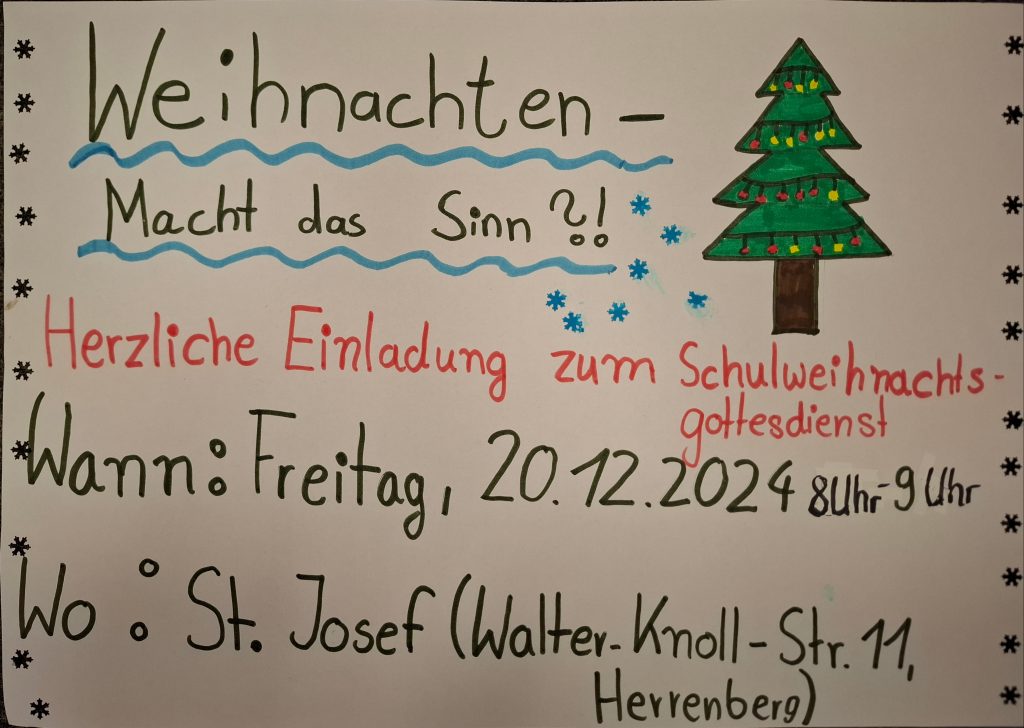 Weihnachten -
Macht das Sinn ?!
Herzliche Einladung zum Schulweihnachts-
gottesdienst
Wann: Freitag, 20.12.2024 8Uhr-9Uhr
Wo : St. Josef (Walter-Knoll-Str. 11,
Herrenberg)